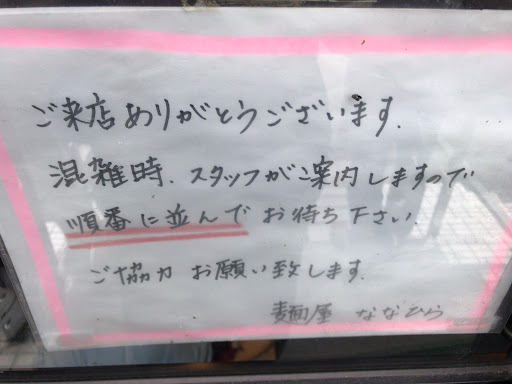 ご来店ありがとうございます.
混雑時、スタッフがご案内しますので
順番に並んでお待ち下さい.
ご協力 お願い致します.
麺屋 ななひら